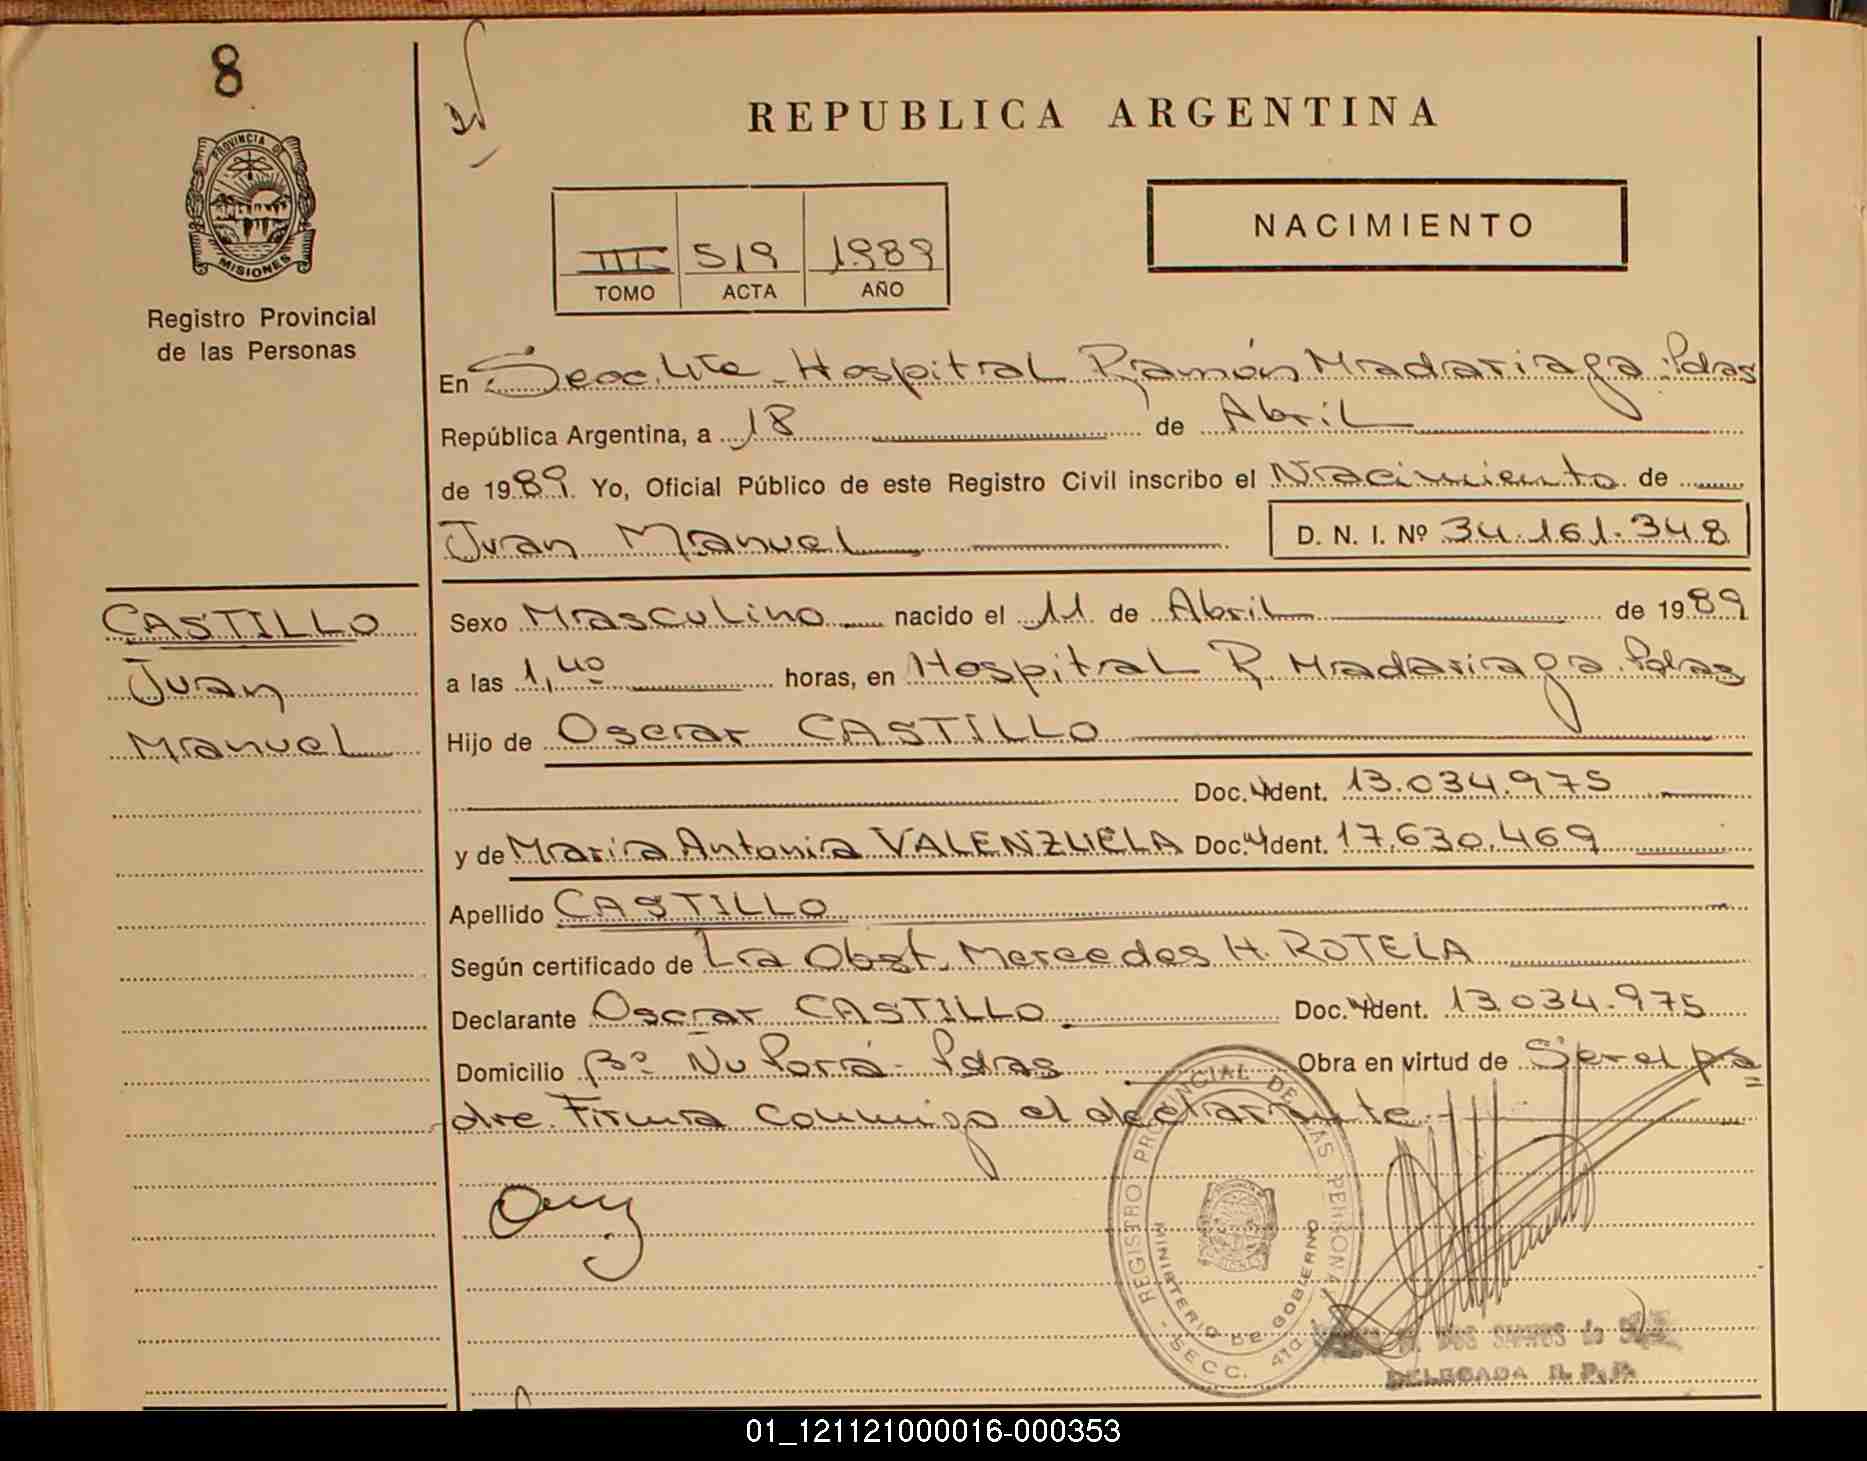 8
REPUBLICA ARGENTINA
PROVINCIA DE
MISIONES
Registro Provincial
de las Personas
NACIMIENTO
III 519 1989
TOMO ACTA AÑO
En Secc. 4ta. Hospital Ramón Madariaga. Pdas
República Argentina, a 18 de Abril
de 1989. Yo, Oficial Público de este Registro Civil inscribo el Nacimiento de
Juan Manuel D. N. I. Nº 34.161.348
CASTILLO
Juan
Manuel
Sexo Masculino nacido el 11 de Abril de 1989
a las 1,40 horas, en Hospital R. Madariaga. Pdas
Hijo de Oscar CASTILLO
Doc. Ident. 13.034.975
y de María Antonia VALENZUELA Doc. Ident. 17.630.469
Apellido CASTILLO
Según certificado de La Obst. Mercedes H. ROTELA
Declarante Oscar CASTILLO Doc. Ident. 13.034.975
Domicilio Bº Ñu Porá - Pdas Obra en virtud de Ser el pa
dre. Firma conmigo el declarante.-
REGISTRO PROVINCIAL DE LAS PERSONAS
MINISTERIO DE GOBIERNO
- SECC. 4ta
DOS SANTOS de
DELEGADA R. P. P.
01_121121000016-000353